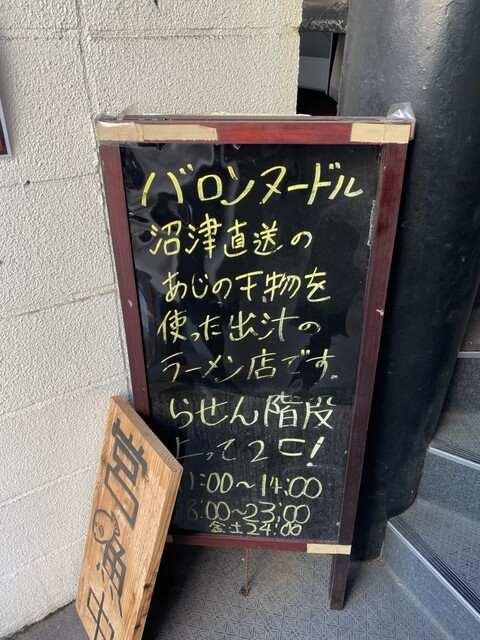 バロンヌードル
沼津直送の
あじの干物を
使った出汁の
ラーメン店です。
らせん階段
上って2F!
1:00〜14:00
8:00〜23:00
金土24:00